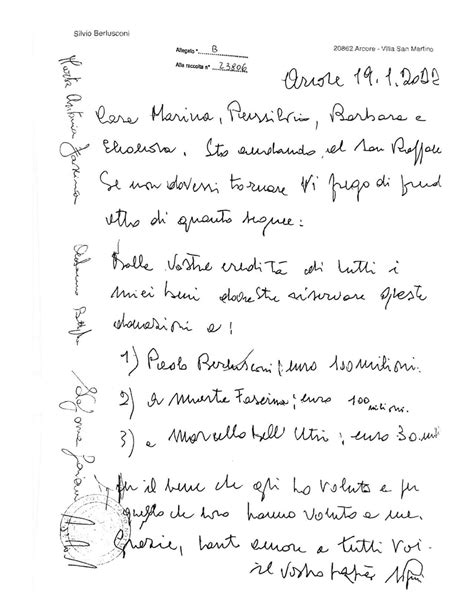 Silvio Berlusconi
20862 Arcore - Villa San Martino
Allegato " B
Alla raccolta n° 23806
Arcore 19.1.2022
Cara Marina, Piersilvio, Barbara e
Eleonora, Sto andando al San Raffaele
Se non dovessi tornare Vi prego di prend
atto di quanto segue:
Dalla Vostra eredità di tutti i
miei beni dovreste riservare queste
donazioni a:
1) Paolo Berlusconi; euro 100 milioni.
2) a Marta Fascina; euro 100 milioni.
3) a Marcello Dell'Utri; euro 30 mili
Per il bene che gli ho voluto e per
quello che loro hanno voluto a me.
Grazie, tanto amore a tutti Voi
il Vostro papà
Marta Antonia Fascina